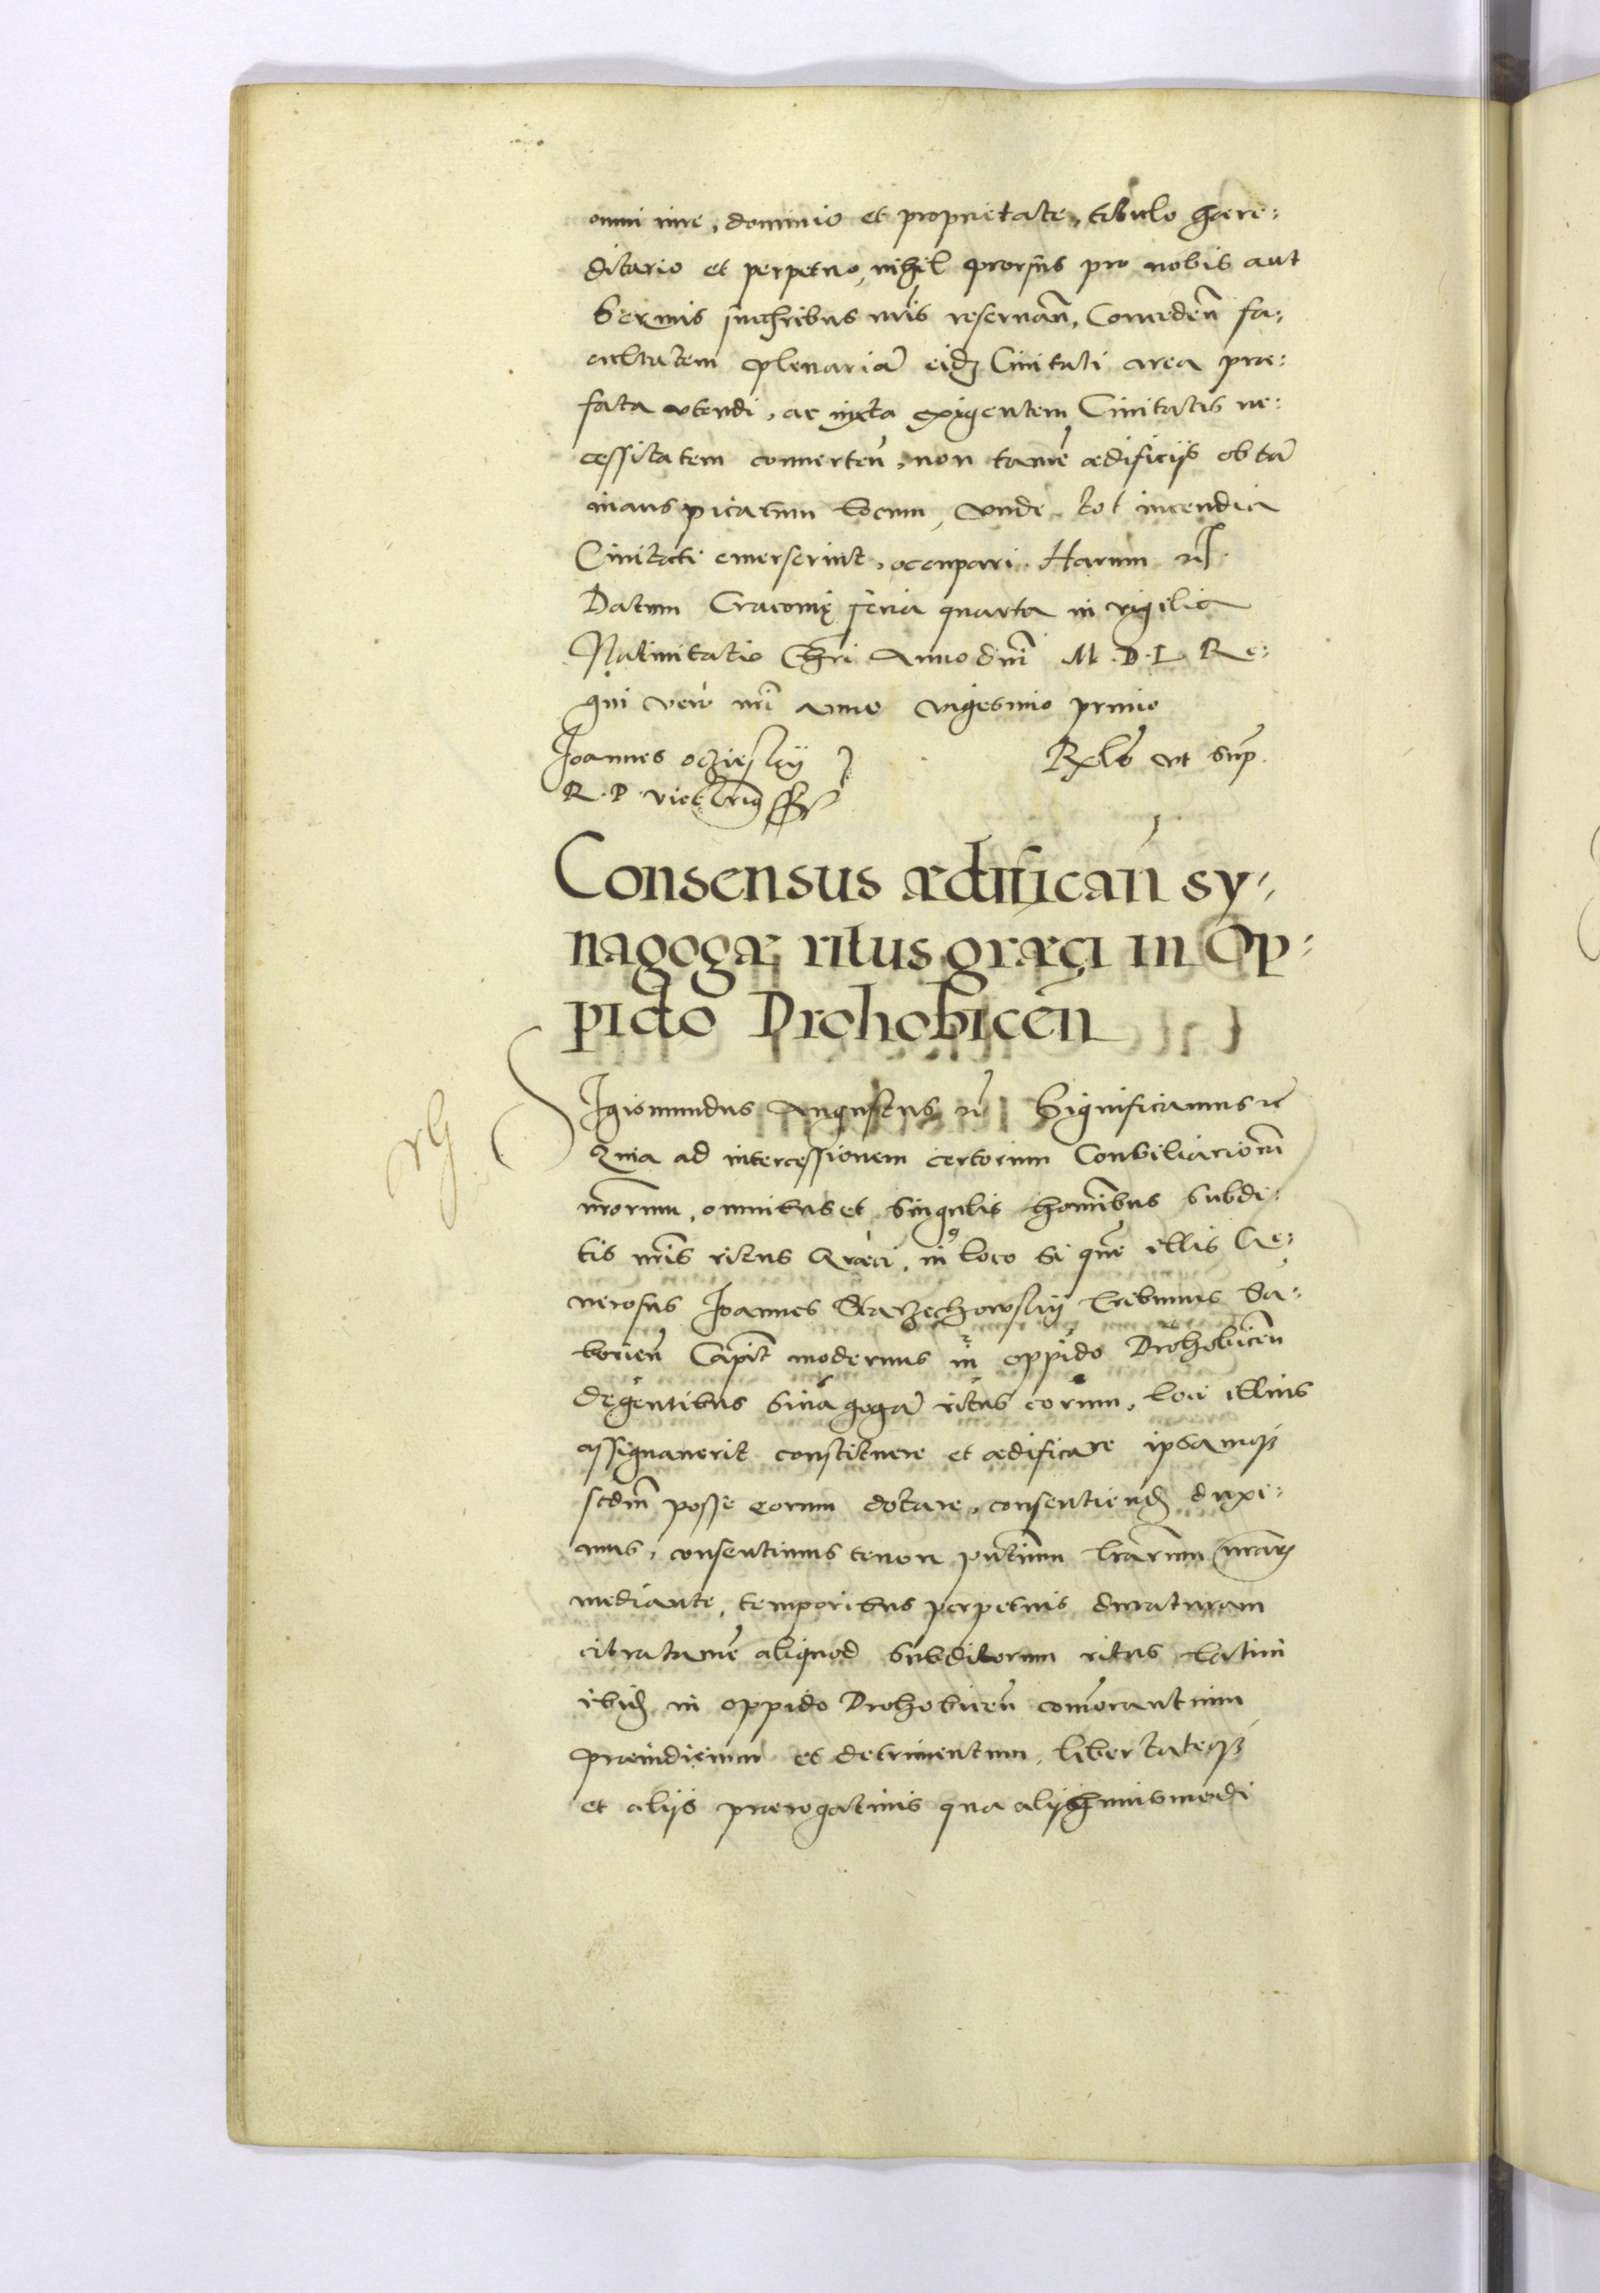 omni iure, dominio et proprietate, titulo hære=
ditario et perpetuo, nihil prorsus pro nobis aut
Sermis succribus nris reseruan̄, Conceden̄ fa=
cultatem plenariā eidȝ Ciuitati area præ=
fata vtendi, ac iuxta exigentem Ciuitatis ne=
cessitatem conuerten̄, non tamē ædificijs ob tā
inauspicatum locum, vnde tot incendia
Ciuitati emerserint, occupari. Harum etc.
Datum Cracouię feria quarta in vigilia
Natiuitatis Chri Anno dni M.D.L Re=
gni vero nri anno vigesimo primo
Joannes oczieskij
R.P. vicecrius
Relo vt sup.
Consensus ædifican̄ sy=
nagogæ ritus græci in Op=
pido Drohobicen̄
Sigismundus Augustus etc Significamus etc
Quia ad intercessionem certorum Consiliariorū
nrorum, omnibus et singulis hominibus subdi=
tis nris ritus Græci, in loco si quē illis Ge=
nerosus Joannes Starzechowskij tribunus Sa=
borien̄ Capit modernus in oppido Drohobicen̄
degentibus Sinagogā ritus eorum, loci illius
assignauerit constituere et ædificare ipsamqȝ
scdm posse eorum dotare, consentiendȝ duxi=
mus, consentimus tenore pntium lrarum nrarȝ
mediante, temporibus perpetuis duraturam
citra tamē aliquod subditorum ritus latini
ibidȝ in oppido Drohobicen̄ com̄orantium
præiudicium et detrimentum, libertateqȝ
et alijs prærogatiuis qua alij huiusmodi